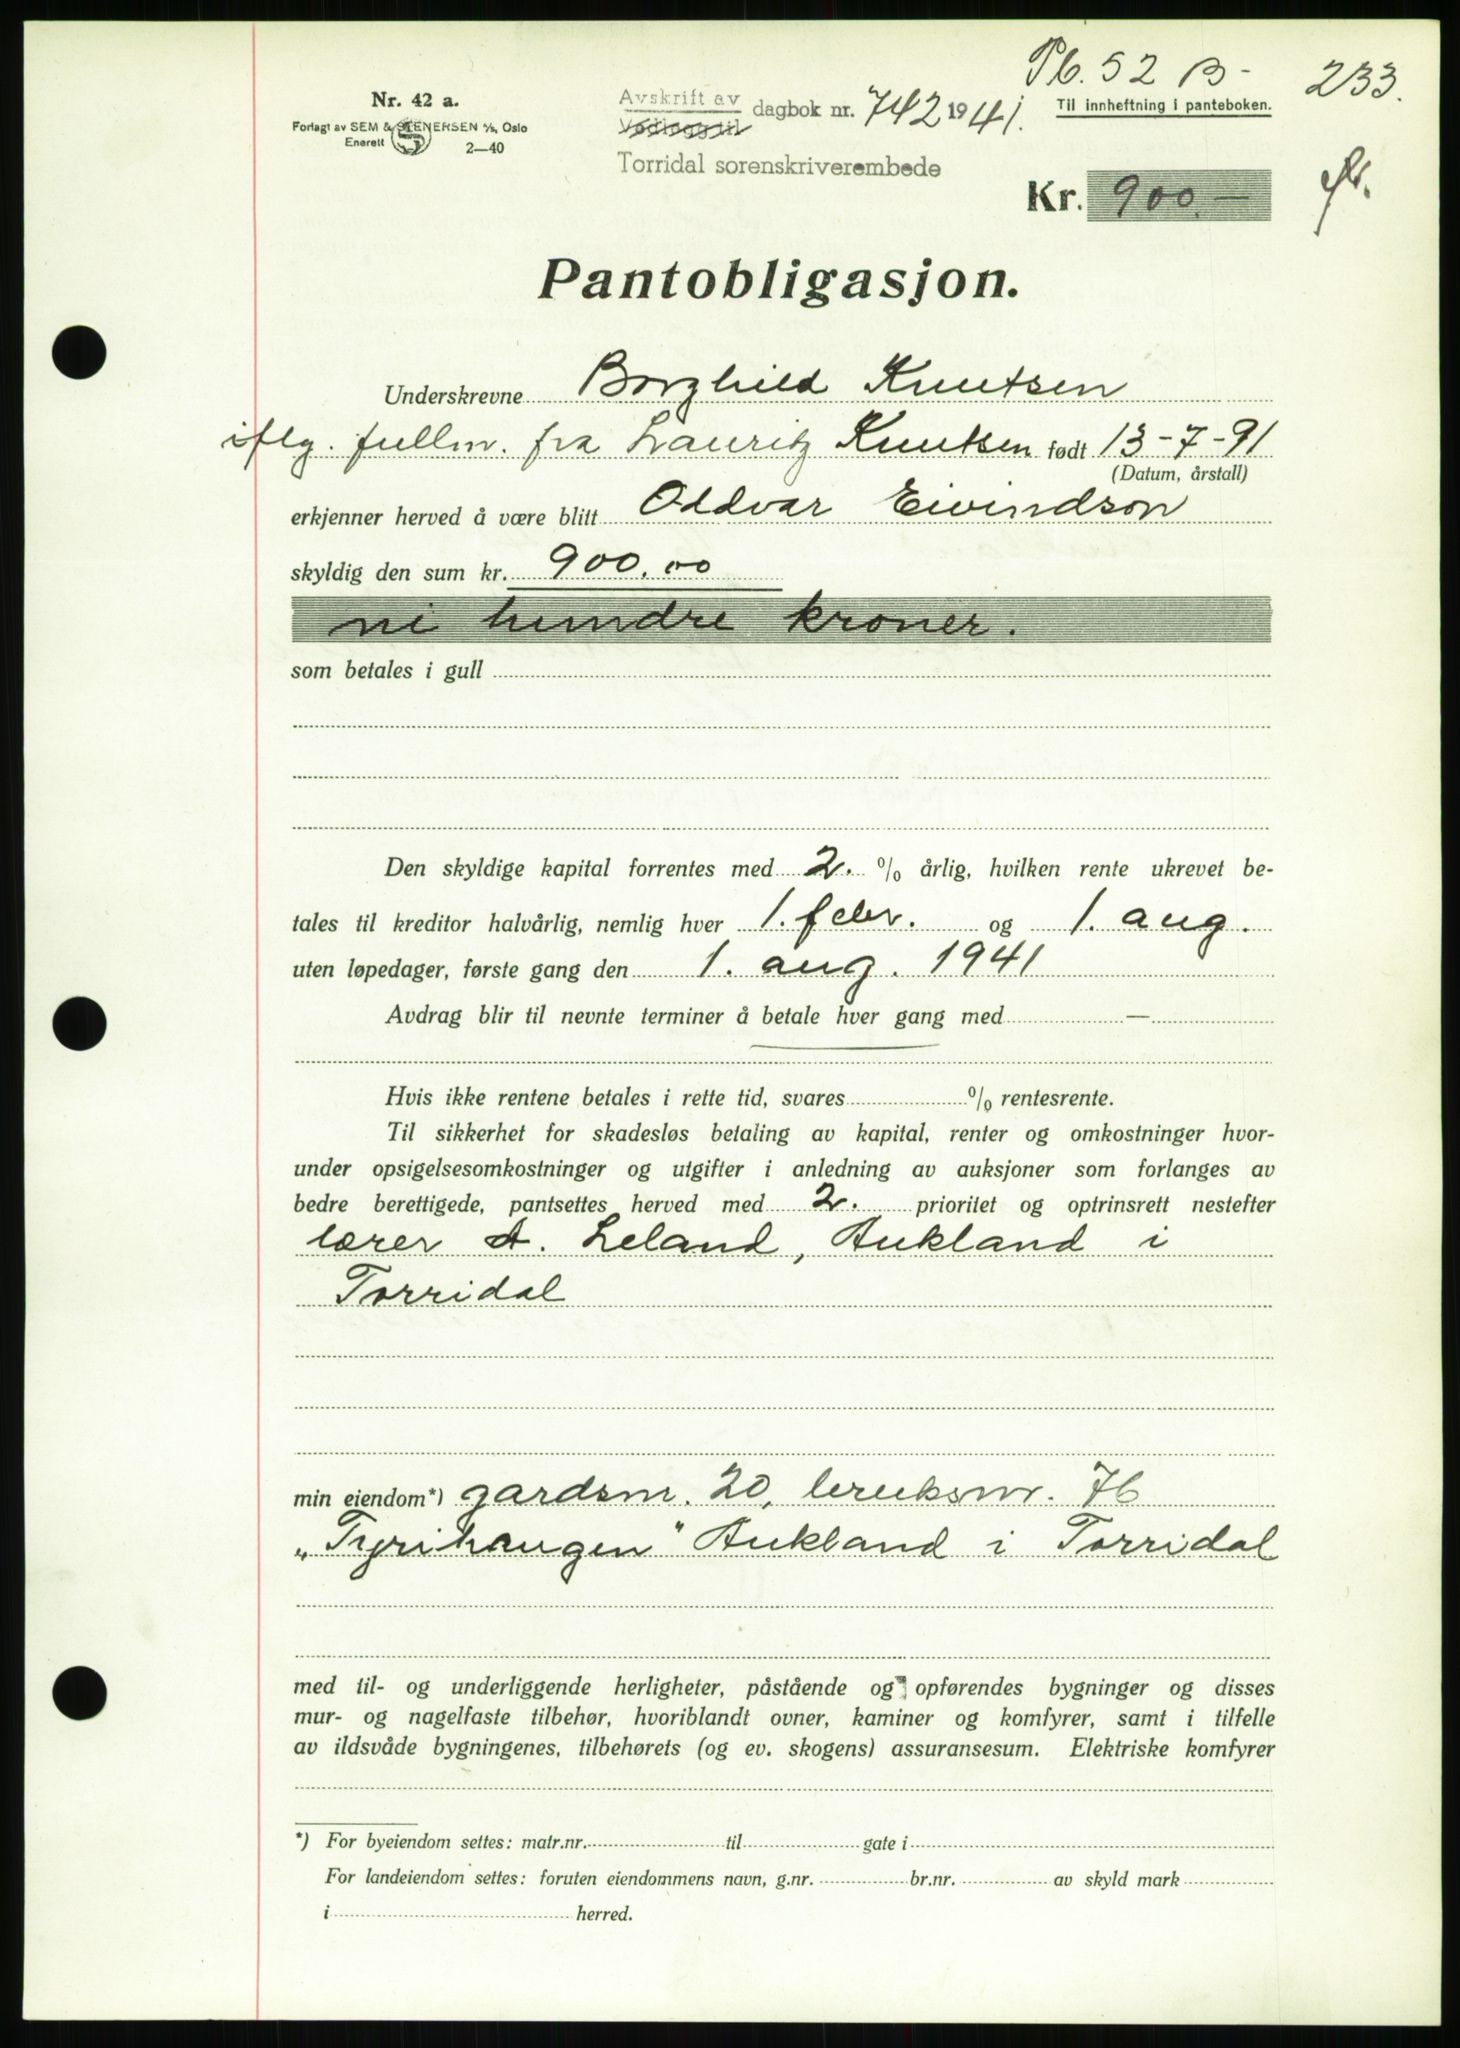 Pb. 52 B - 233.
Nr. 42 a.
Forlagt av SEM & STENERSEN A/S, Oslo
Enerett 2—40
Avskrift av
Vedlegg til
dagbok nr. 742 1941.
Torridal sorenskriverembede
Til innheftning i panteboken.
Kr. 900.—
Pantobligasjon.
Underskrevne Borghild Knutsen
iflg. fullm. fra Lauritz Knutsen født 13-7-91
(Datum, årstall)
erkjenner herved å være blitt Oddvar Eivindson
skyldig den sum kr. 900.00
ni hundre kroner.
som betales i gull
Den skyldige kapital forrentes med 2. % årlig, hvilken rente ukrevet be-
tales til kreditor halvårlig, nemlig hver 1. febr. og 1. aug.
uten løpedager, første gang den 1. aug. 1941
Avdrag blir til nevnte terminer å betale hver gang med —
Hvis ikke rentene betales i rette tid, svares % rentesrente.
Til sikkerhet for skadesløs betaling av kapital, renter og omkostninger hvor-
under opsigelsesomkostninger og utgifter i anledning av auksjoner som forlanges av
bedre berettigede, pantsettes herved med 2. prioritet og optrinsrett nestefter
lærer A. Leland, Aukland i
Torridal
min eiendom*) gardsnr. 20, bruksnr. 76
„Tyrihaugen" Aukland i Torridal
med til- og underliggende herligheter, påstående og opførendes bygninger og disses
mur- og nagelfaste tilbehør, hvoriblandt ovner, kaminer og komfyrer, samt i tilfelle
av ildsvåde bygningenes, tilbehørets (og ev. skogens) assuransesum. Elektriske komfyrer
*) For byeiendom settes: matr.nr. til gate i
For landeiendom settes: foruten eiendommens navn, g.nr. br.nr. av skyld mark
i herred.